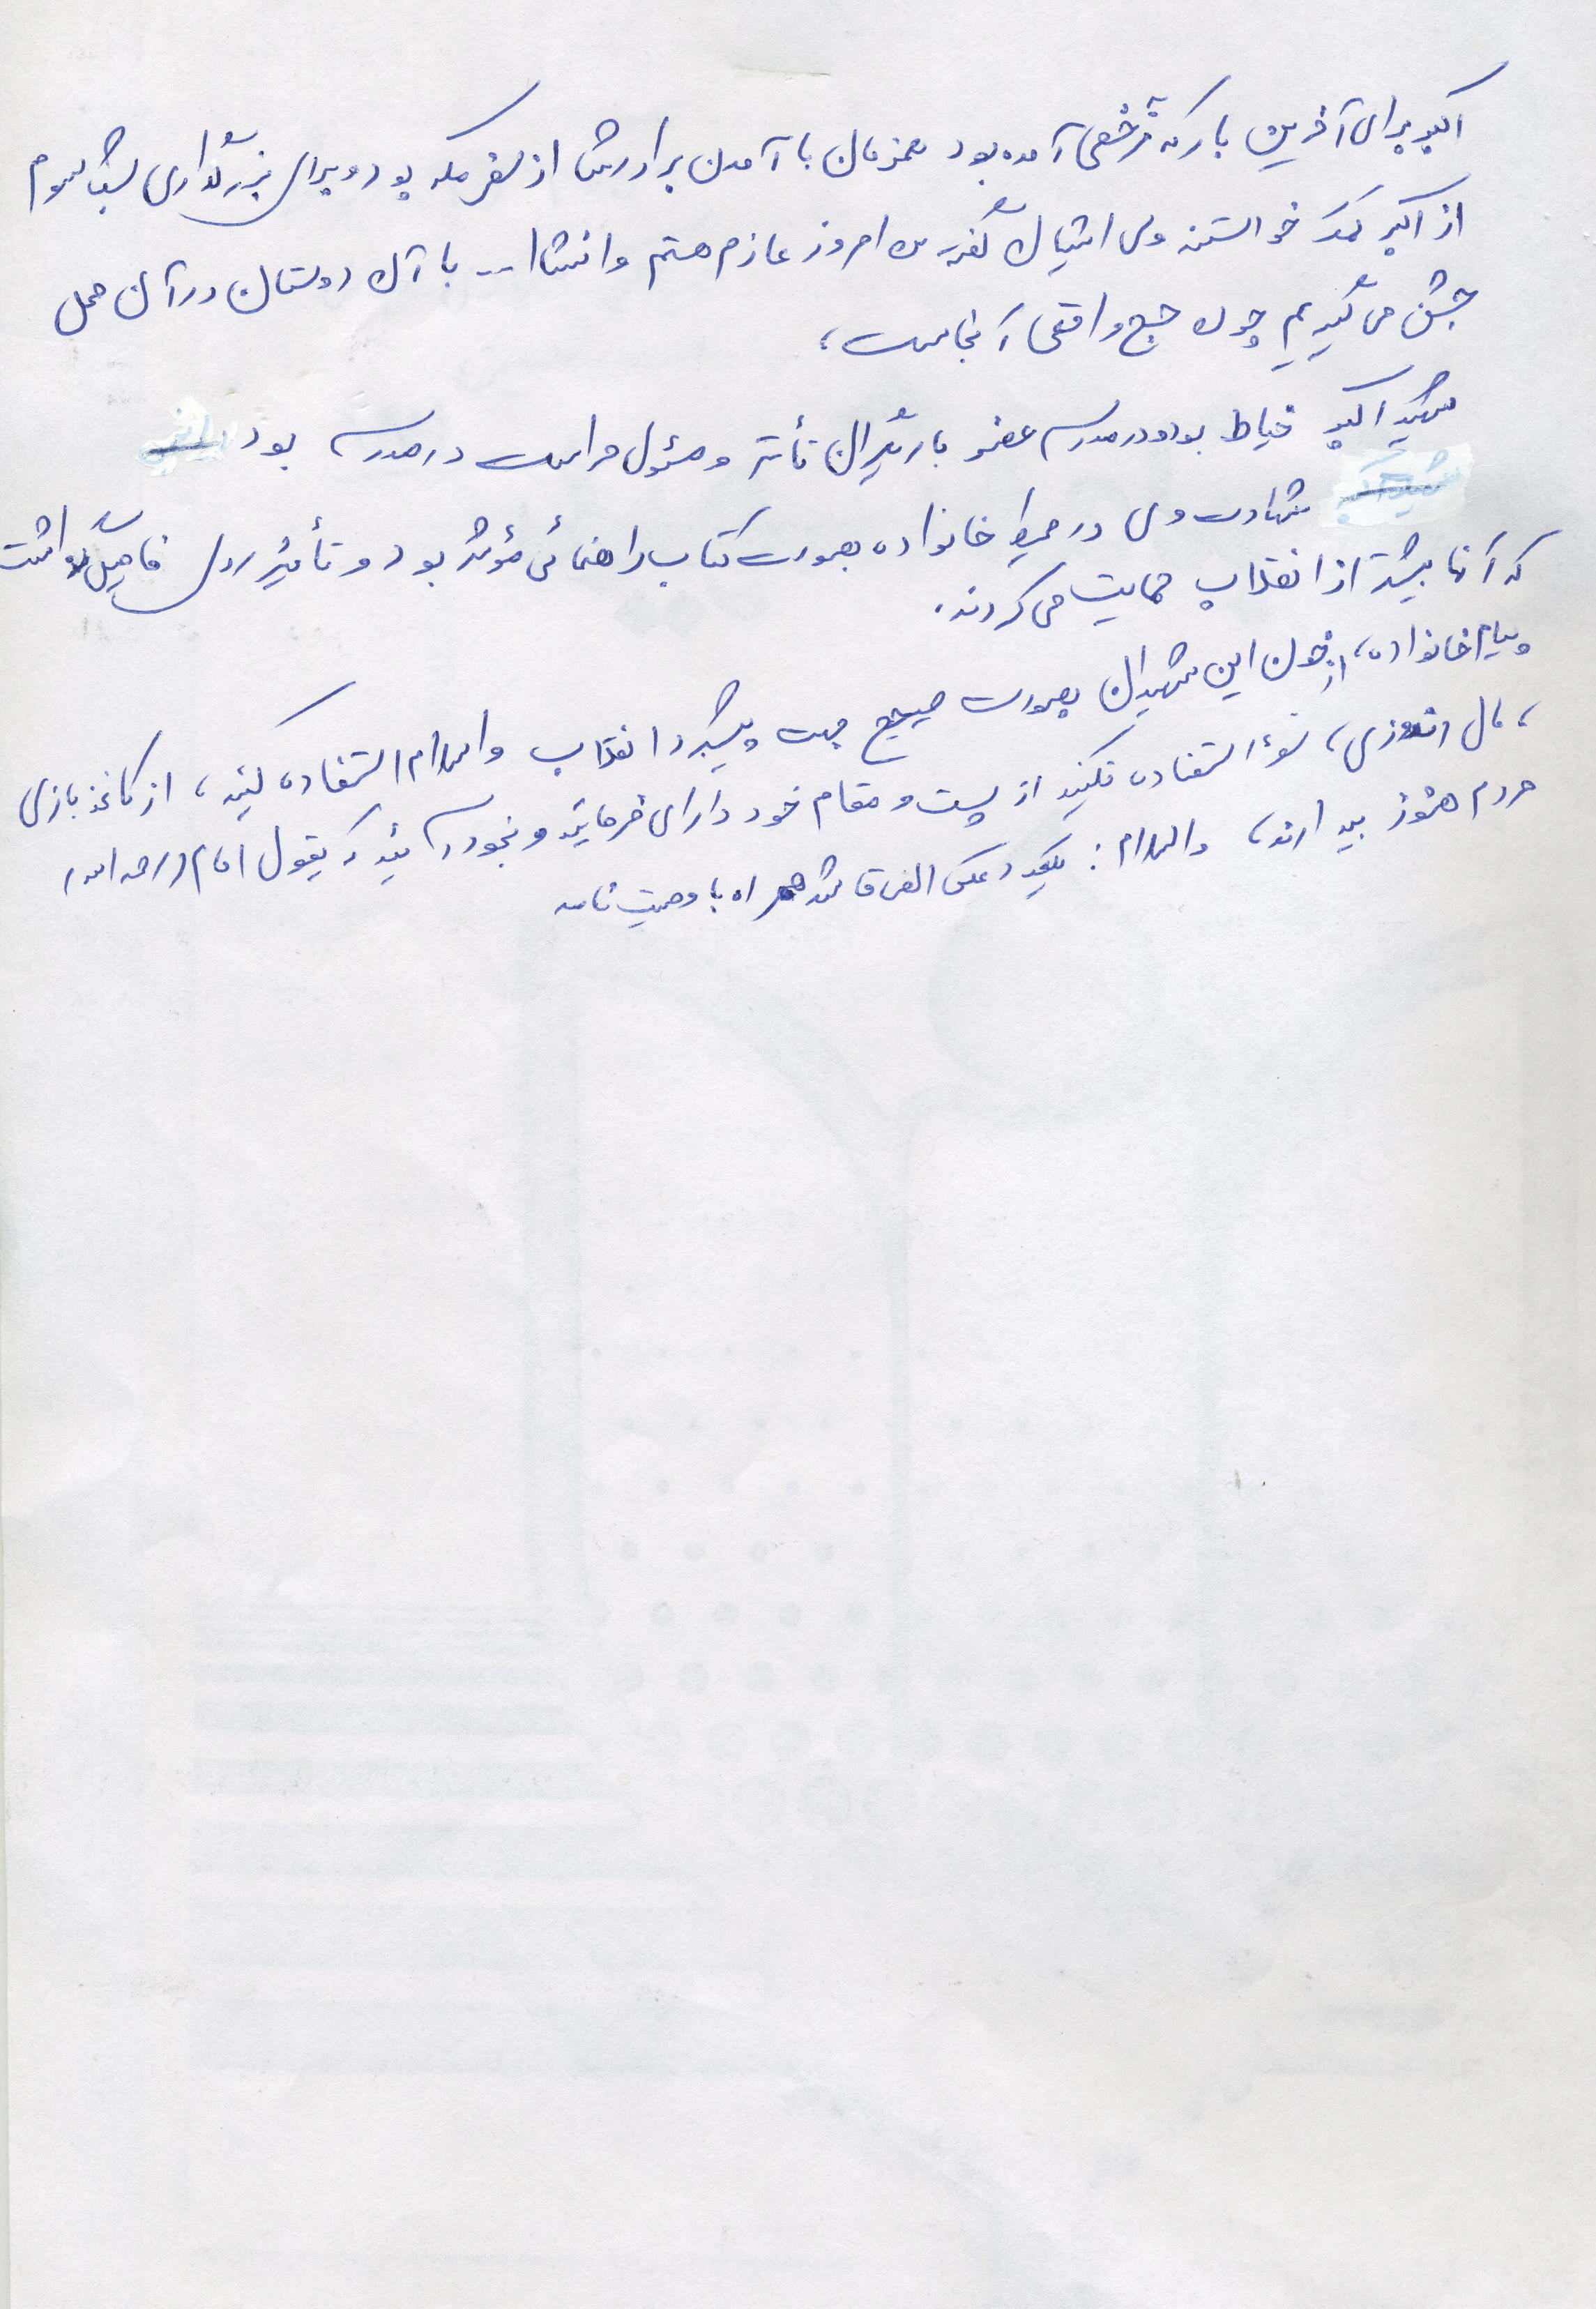 اکبر برای آخرین بار که مرخصی آمده بود همزمان با آمدن برادرش از سفر مکه بود و برای برگذاری شب سوم
از اکبر کمک خواستند ولی ایشان گفته من امروز عازم هستم و انشاا... با آن دوستان در آن محل
جشن می گیریم چون حج واقعی آنجاست،
شهید اکبر خیاط بود و در مدرسه عضو بازیگران تأتر و مسؤل حراست در مدرسه بود
شهادت وی در محیط خانواده بصورت کتاب راهنمائی مؤثر بود و تأثیر روی فامیل داشت
که آنها بیشتر از انقلاب حمایت می کردند.
پیام خانواده، از خون این شهیدان بصورت صحیح جهت پیشبرد انقلاب و اسلام استفاده کنید، از کاغذ بازی
، مال اندوزی، سوء استفاده نکنید از پست و مقام خود دارای فرمائید و بخود آئید که بقول امام (رحمه الله)
مردم هنوز بیدارند، والسلام: یکعدد عکس الصاق شد همراه با وصیت نامه